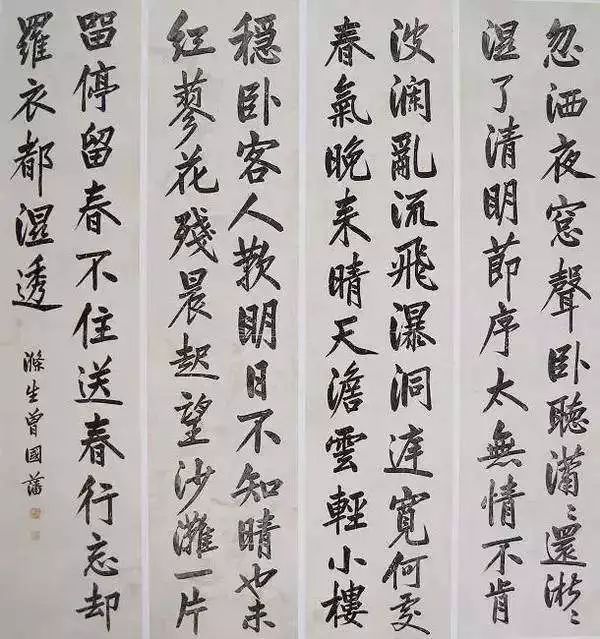 忽洒夜窓聲卧聽瀟〻還淅〻
湿了清明節序太無情不肯
波澜亂流飛瀑洞庭寬何处
春氣晚来晴天澹雲輕小樓
穏卧客人歎明日不知晴也未
红蓼花殘晨起望沙灘一片
畱停留春不住送春行忘却
羅衣都湿透
滌生曾國藩